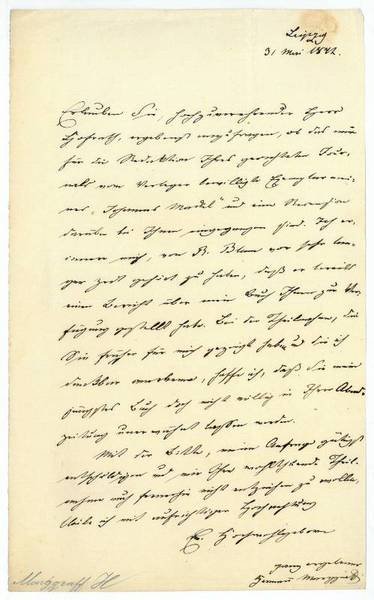 Leipzig
31 Mai 1842.
Erlauben Sie, hochzuverehrender Herr
Hofrath, ergebenst anzufragen, ob das mir
für die Redaktion Ihres geachteten Jour-
nals vom Verleger bewilligte Exemplar mei-
nes „Johannes Mackel“ und eine Recension
darüber bei Ihnen eingegangen sind. Ich er-
innere mich, von B. vor sehr lan-
ger Zeit gehört zu haben, daß er bereits
einen Bericht über mein Buch Ihnen zur Ver-
fügung gestellt habe. Bei der Theilnahme, die
Sie früher für mich gezeigt haben und die ich
dankbar anerkenne, hoffe ich, daß Sie mein
jüngstes Buch doch nicht völlig in Ihrer Abend-
zeitung unerwähnt lassen werden.
Mit der Bitte, meine Anfrage gütigst
entschuldigen und mir Ihre Theil-
nahme auch fernerhin nicht entziehen zu wollen,
bleibe ich mit aufrichtiger Hochachtung
Ew. Hochwohlgeboren
ganz ergebener
Hermann Marggraff
Marggraff H